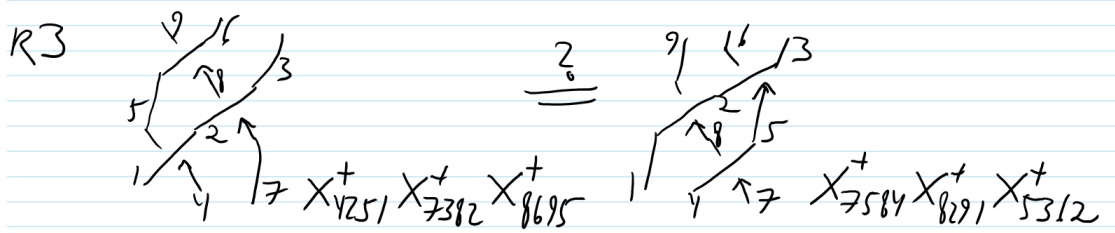 R3
9 6
8 3
5
2
1 4 7 X⁺₄₂₅₁ X⁺₇₃₈₂ X⁺₈₆₉₅
?
=
9 6 3
2
8 5
1 4 7 X⁺₇₅₈₄ X⁺₈₂₉₁ X⁺₅₃₆₂